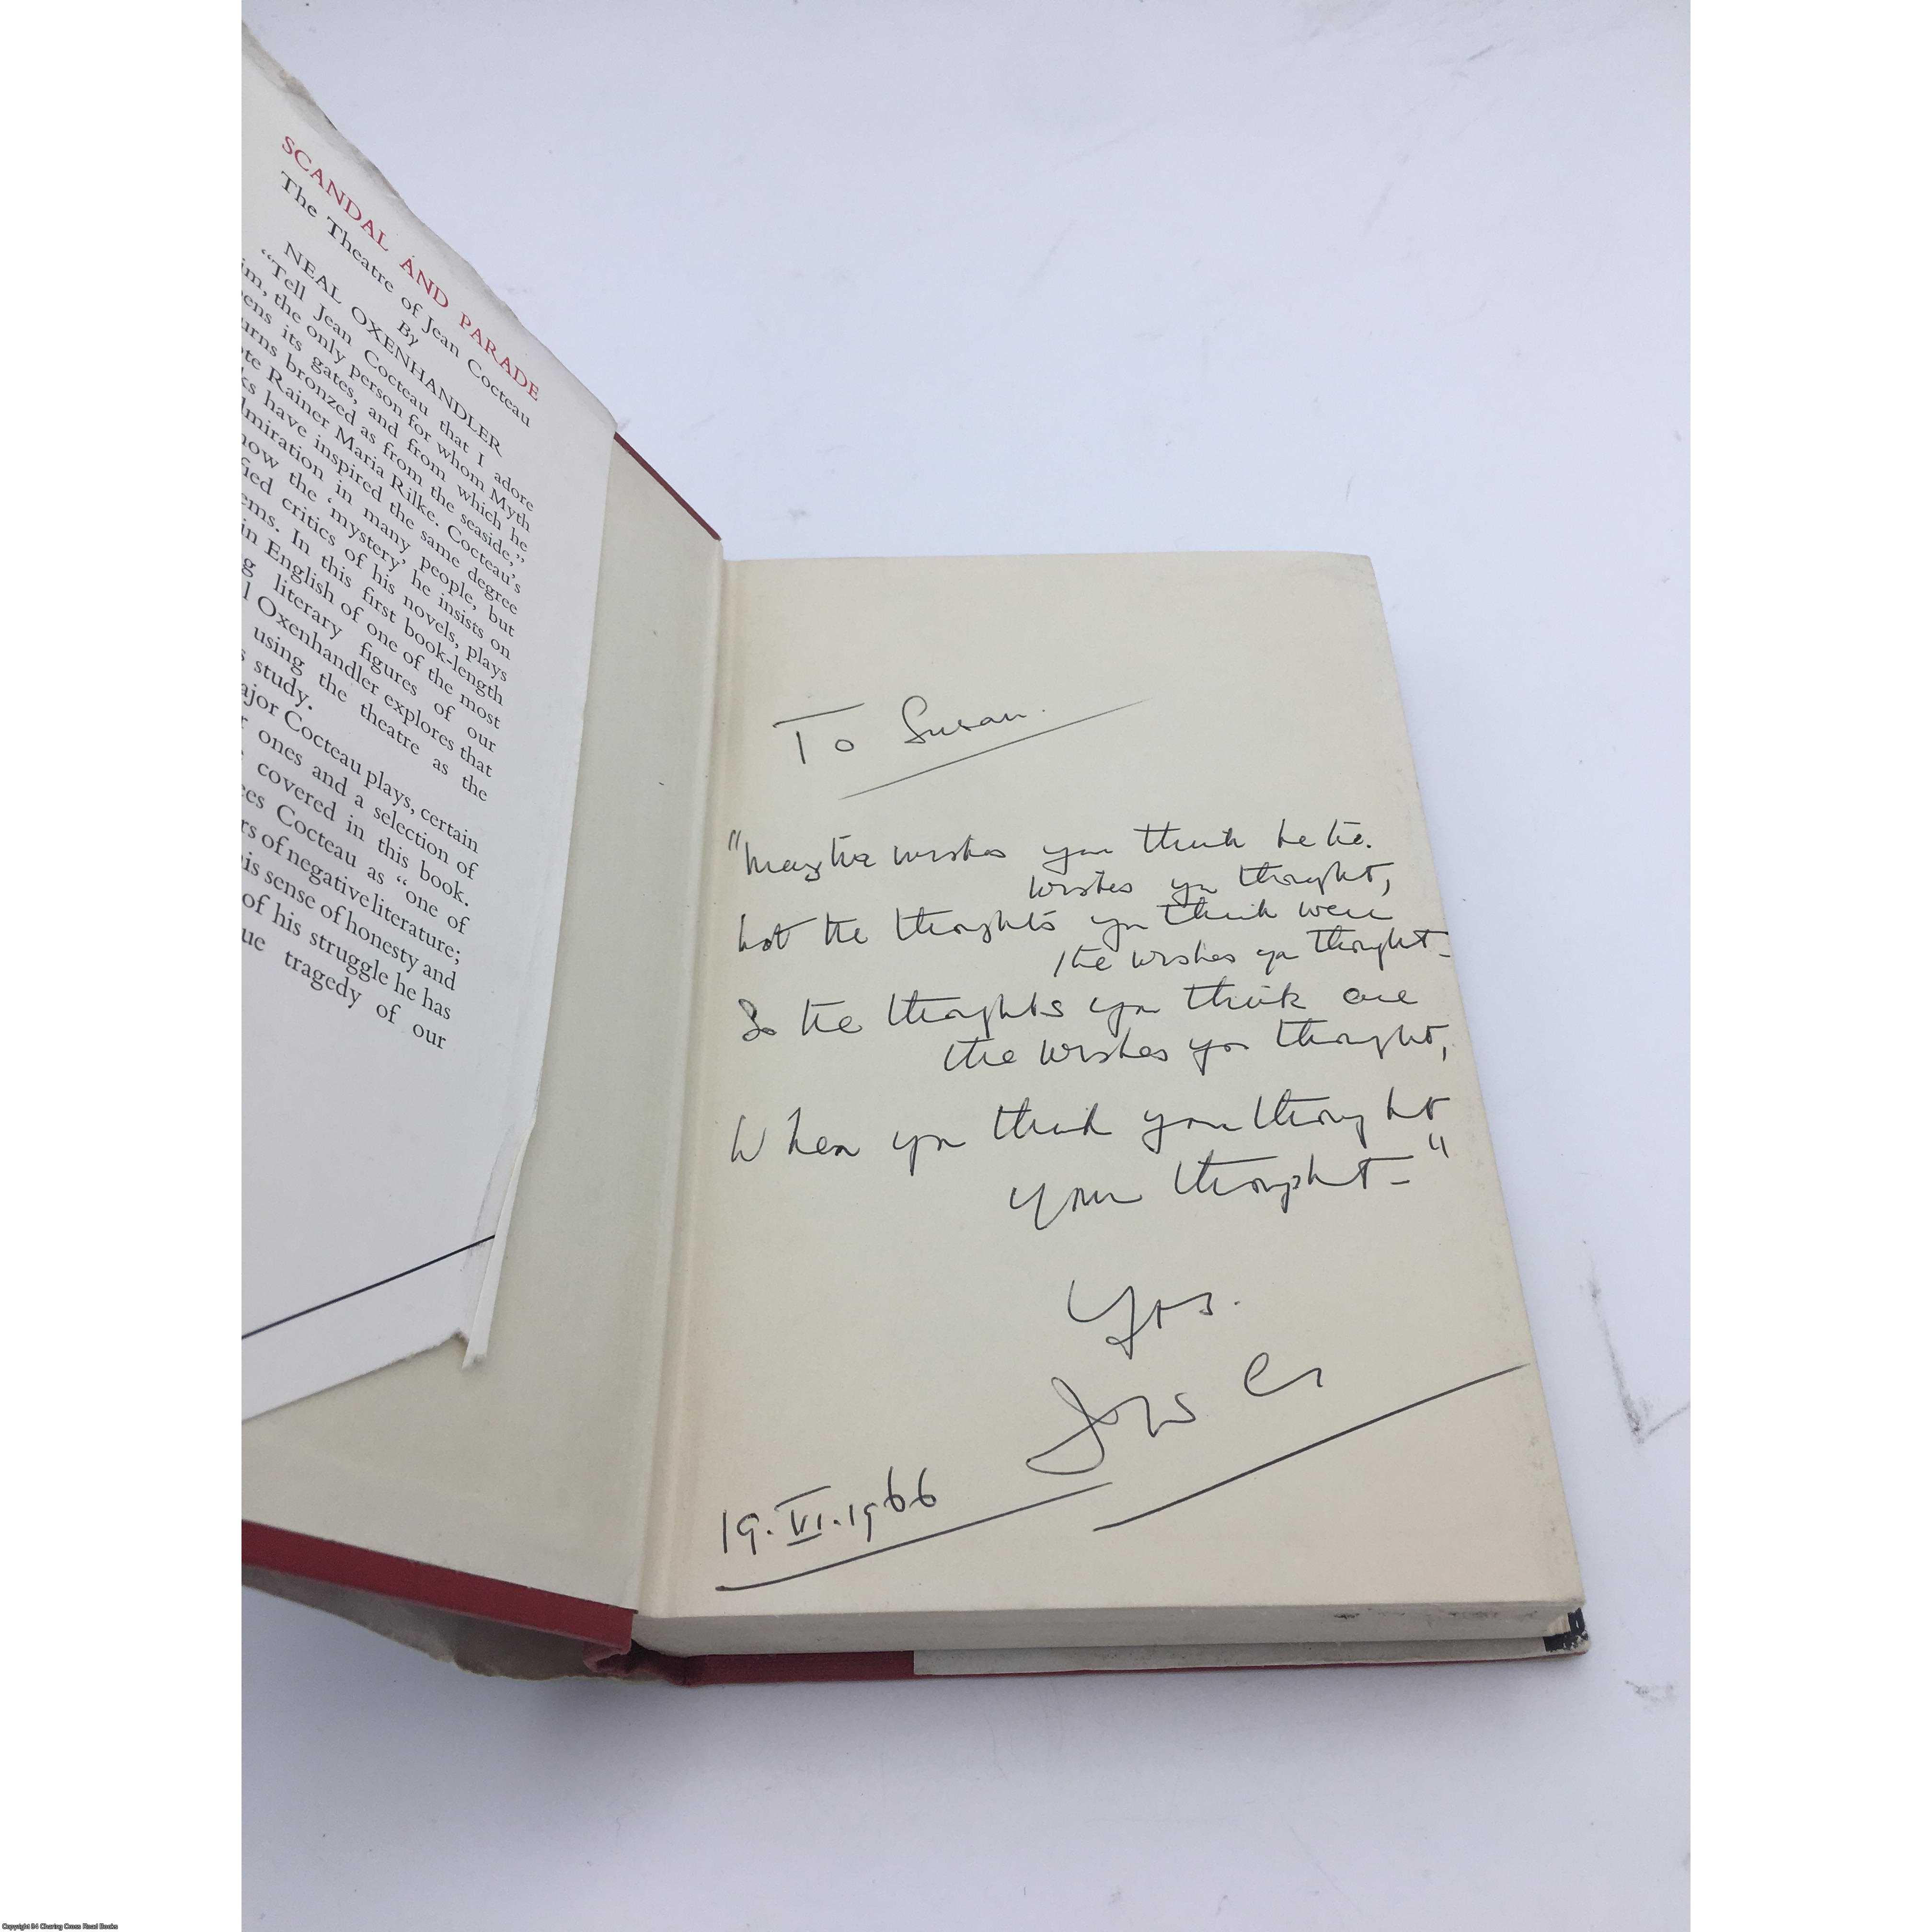 SCANDAL AND PARADE
The Theatre of Jean Cocteau
By
NEAL OXENHANDLER
“Tell Jean Cocteau that I adore
im, the only person for whom Myth
ens its gates, and from which he
urns bronzed as from the seaside,”
te Rainer Maria Rilke. Cocteau's
ks have inspired the same degree
lmiration in many people, but
now the ‘mystery’ he insists on
ied critics of his novels, plays
ems. In this first book-length
in English of one of the most
g literary figures of our
l Oxenhandler explores that
using the theatre as the
s study.
ajor Cocteau plays, certain
r ones and a selection of
covered in this book.
es Cocteau as “one of
rs of negative literature;
is sense of honesty and
of his struggle he has
ue tragedy of our
To Susan.
"May the wishes you think be the
wishes you thought,
not the thoughts you think were
the wishes you thought -
So the thoughts you think are
the wishes you thought,
When you think you thought
your thought - "
Yrs.
19.VI.1966
Copyright 84 Charing Cross Road Books